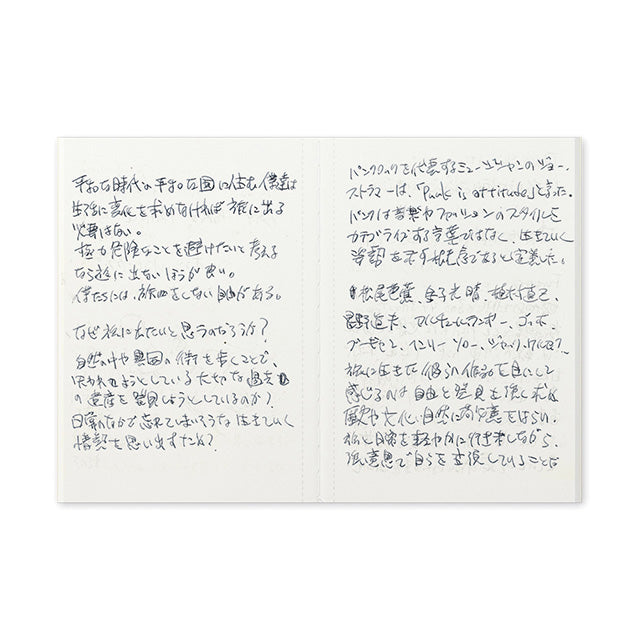 平和な時代の平和な国に住む僕達は
生活に変化を求めなければ旅に出る
必要はない。
極力危険なことを避けたいと考える
なら旅に出ないほうが良い。
僕たちには、旅をしない自由がある。
なぜ旅に出たいと思うのだろうか?
自然の中や異国の街を歩くことで、
失われようとしている大切な過去
の遺産を発見しようとしているのか?
日常のなかで忘れてしまいそうな 生きていく
情熱を思い出すため?
パンクロックを代表するミュージシャンのジョー・
ストラマーは、「Punk is attitude」と言った。
パンクは音楽やファッションのスタイルを
カテゴライズする言葉ではなく、生きていく
姿勢を示す言葉であると定義した。
松尾芭蕉、金子光晴、植村直己、
星野道夫、アルチュール・ランボー、ゴッホ、
ゴーギャン、ヘンリー・ソロー、ジャック・ケルアック、
旅に生きた彼らの作品を目にして
感じるのは自由と発見を強く求め
歴史や文化、自然に敬意をはらい、
旅と日常を軽やかに行き来しながら、
強い意思で自らを表現していることだ